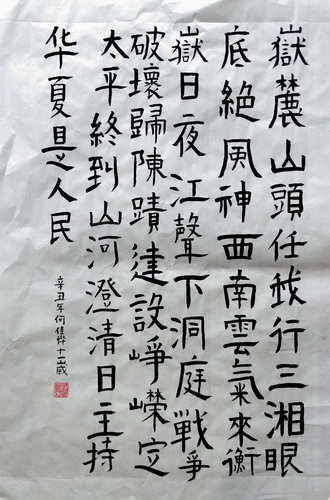 嶽麓山頭任我行三湘眼
底絕風神西南雲氣來衡
嶽日夜江聲下洞庭戰爭
破壞歸陳蹟建設崢嶸定
太平終到山河澄清日主持
华夏是人民
辛丑年何佳烨十二歲